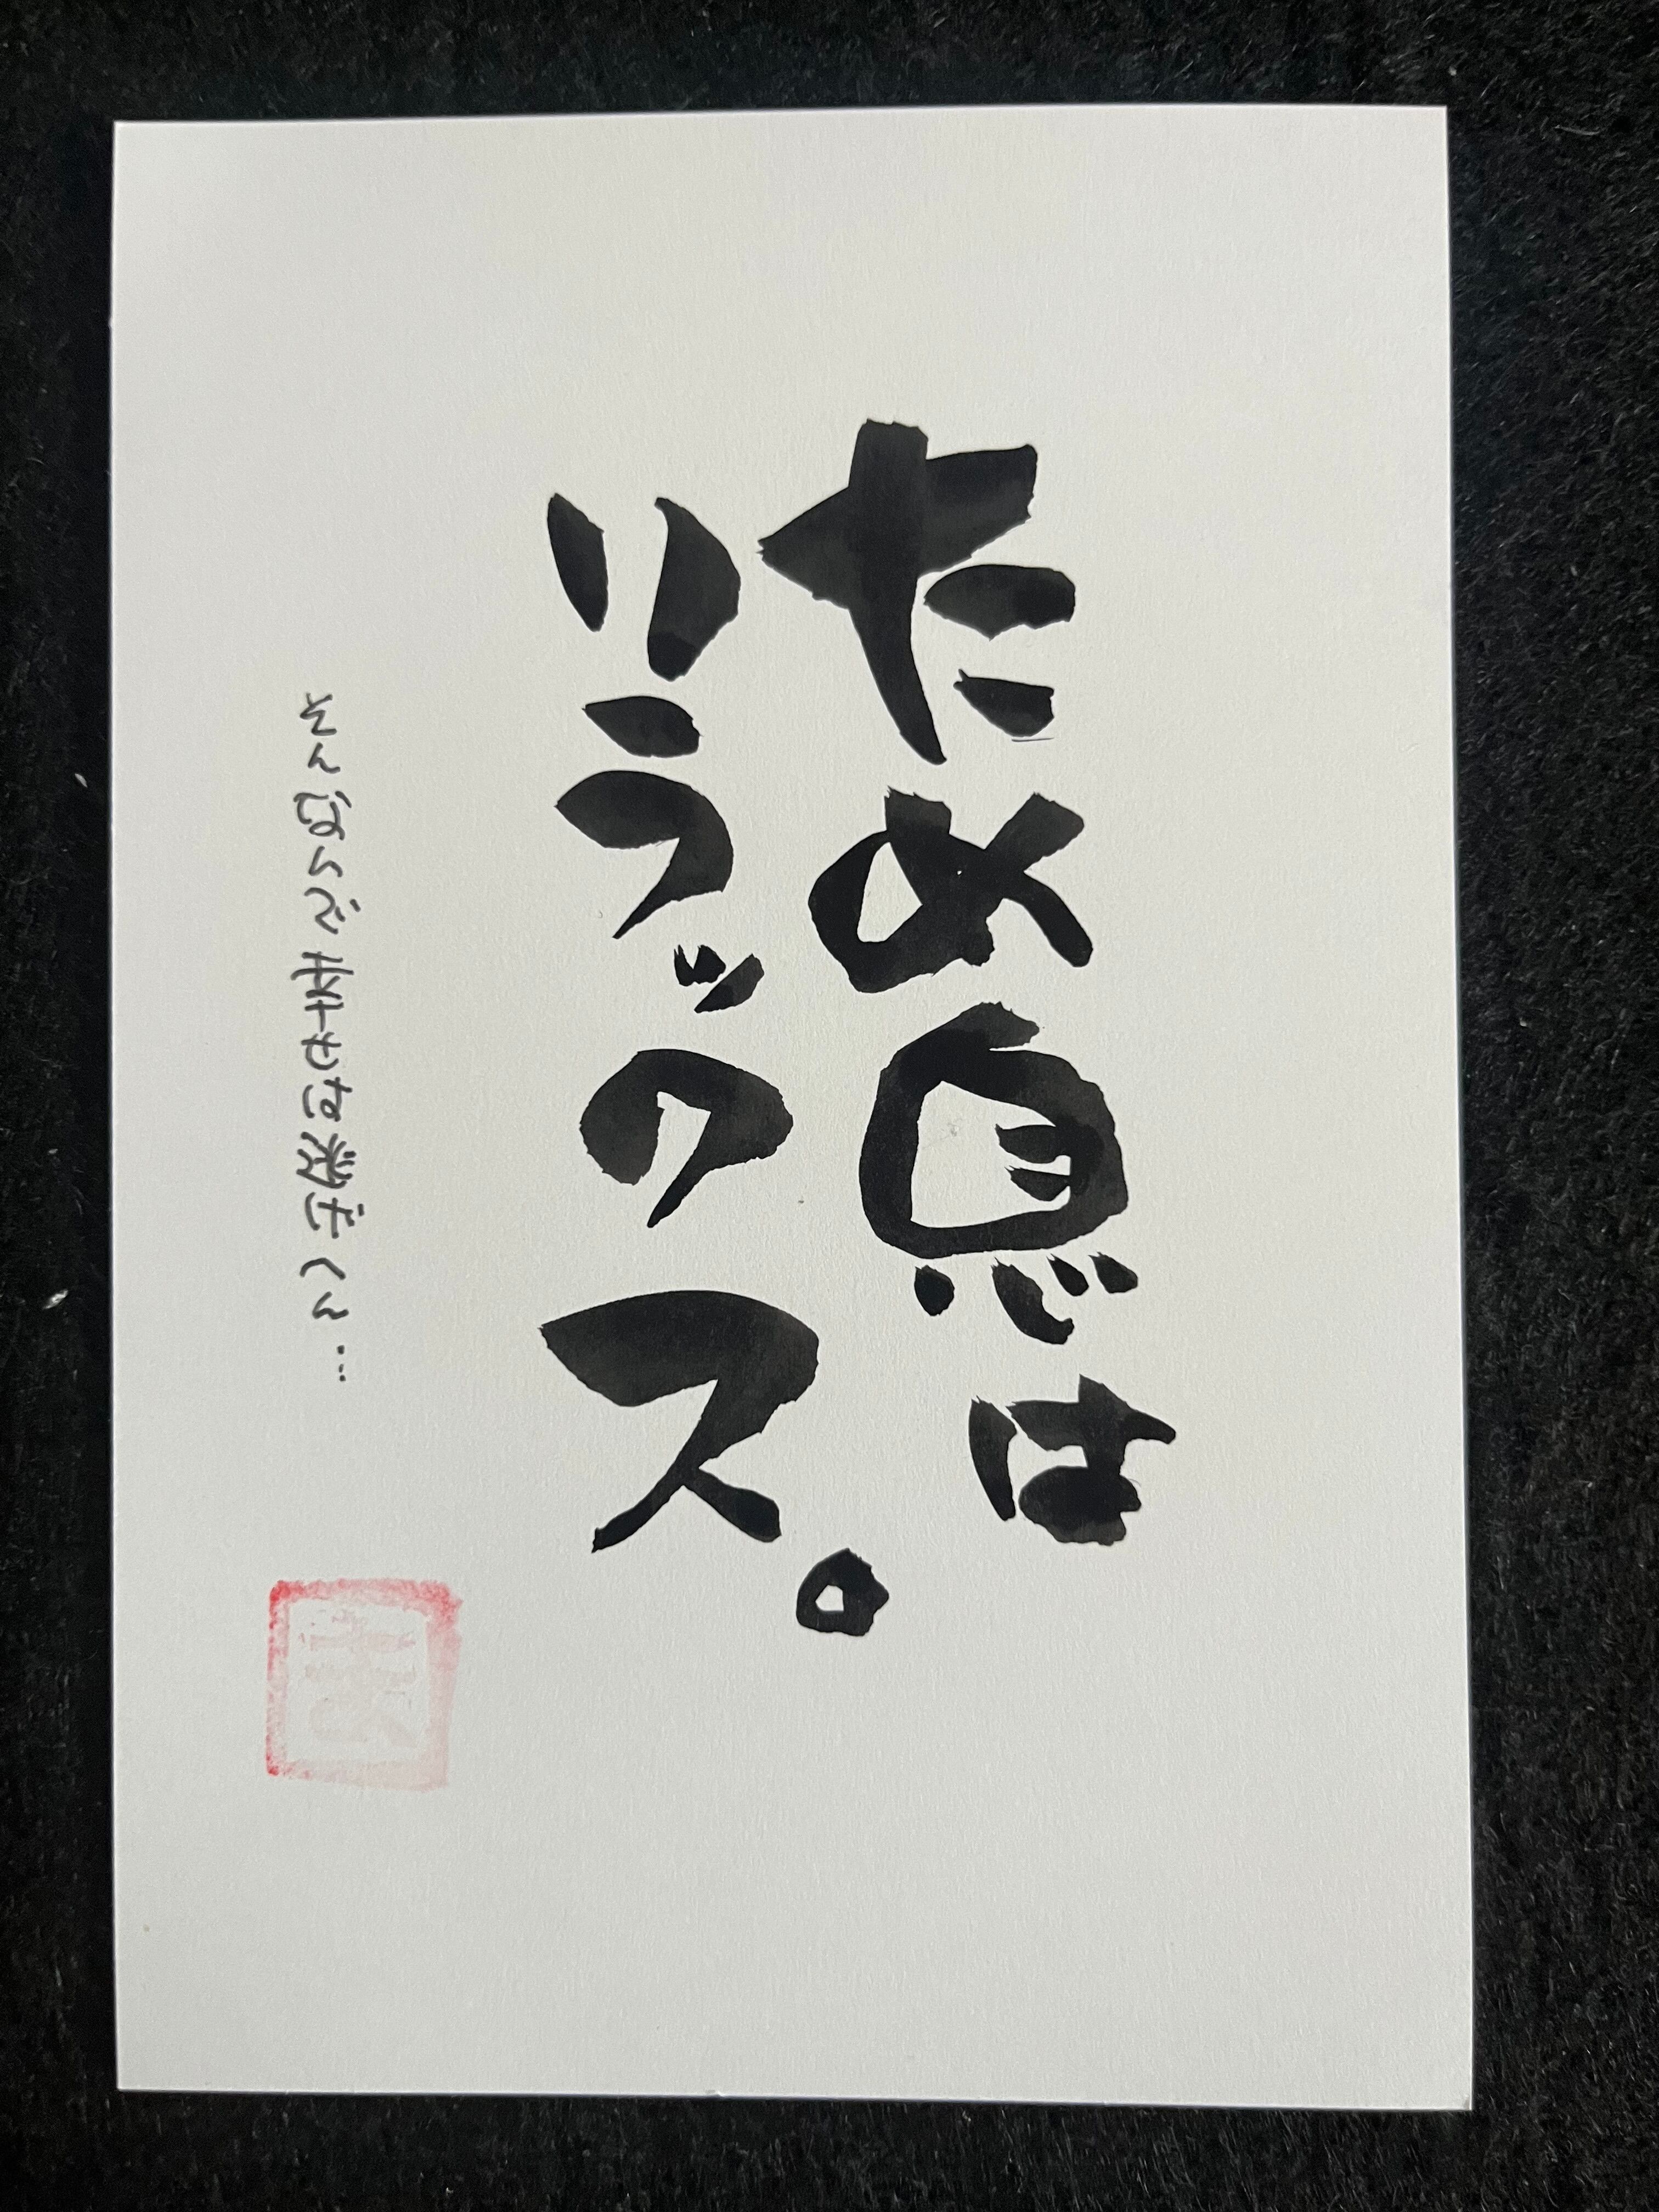 ため息は
リラックス。
そんならで幸せは逃げてくん…